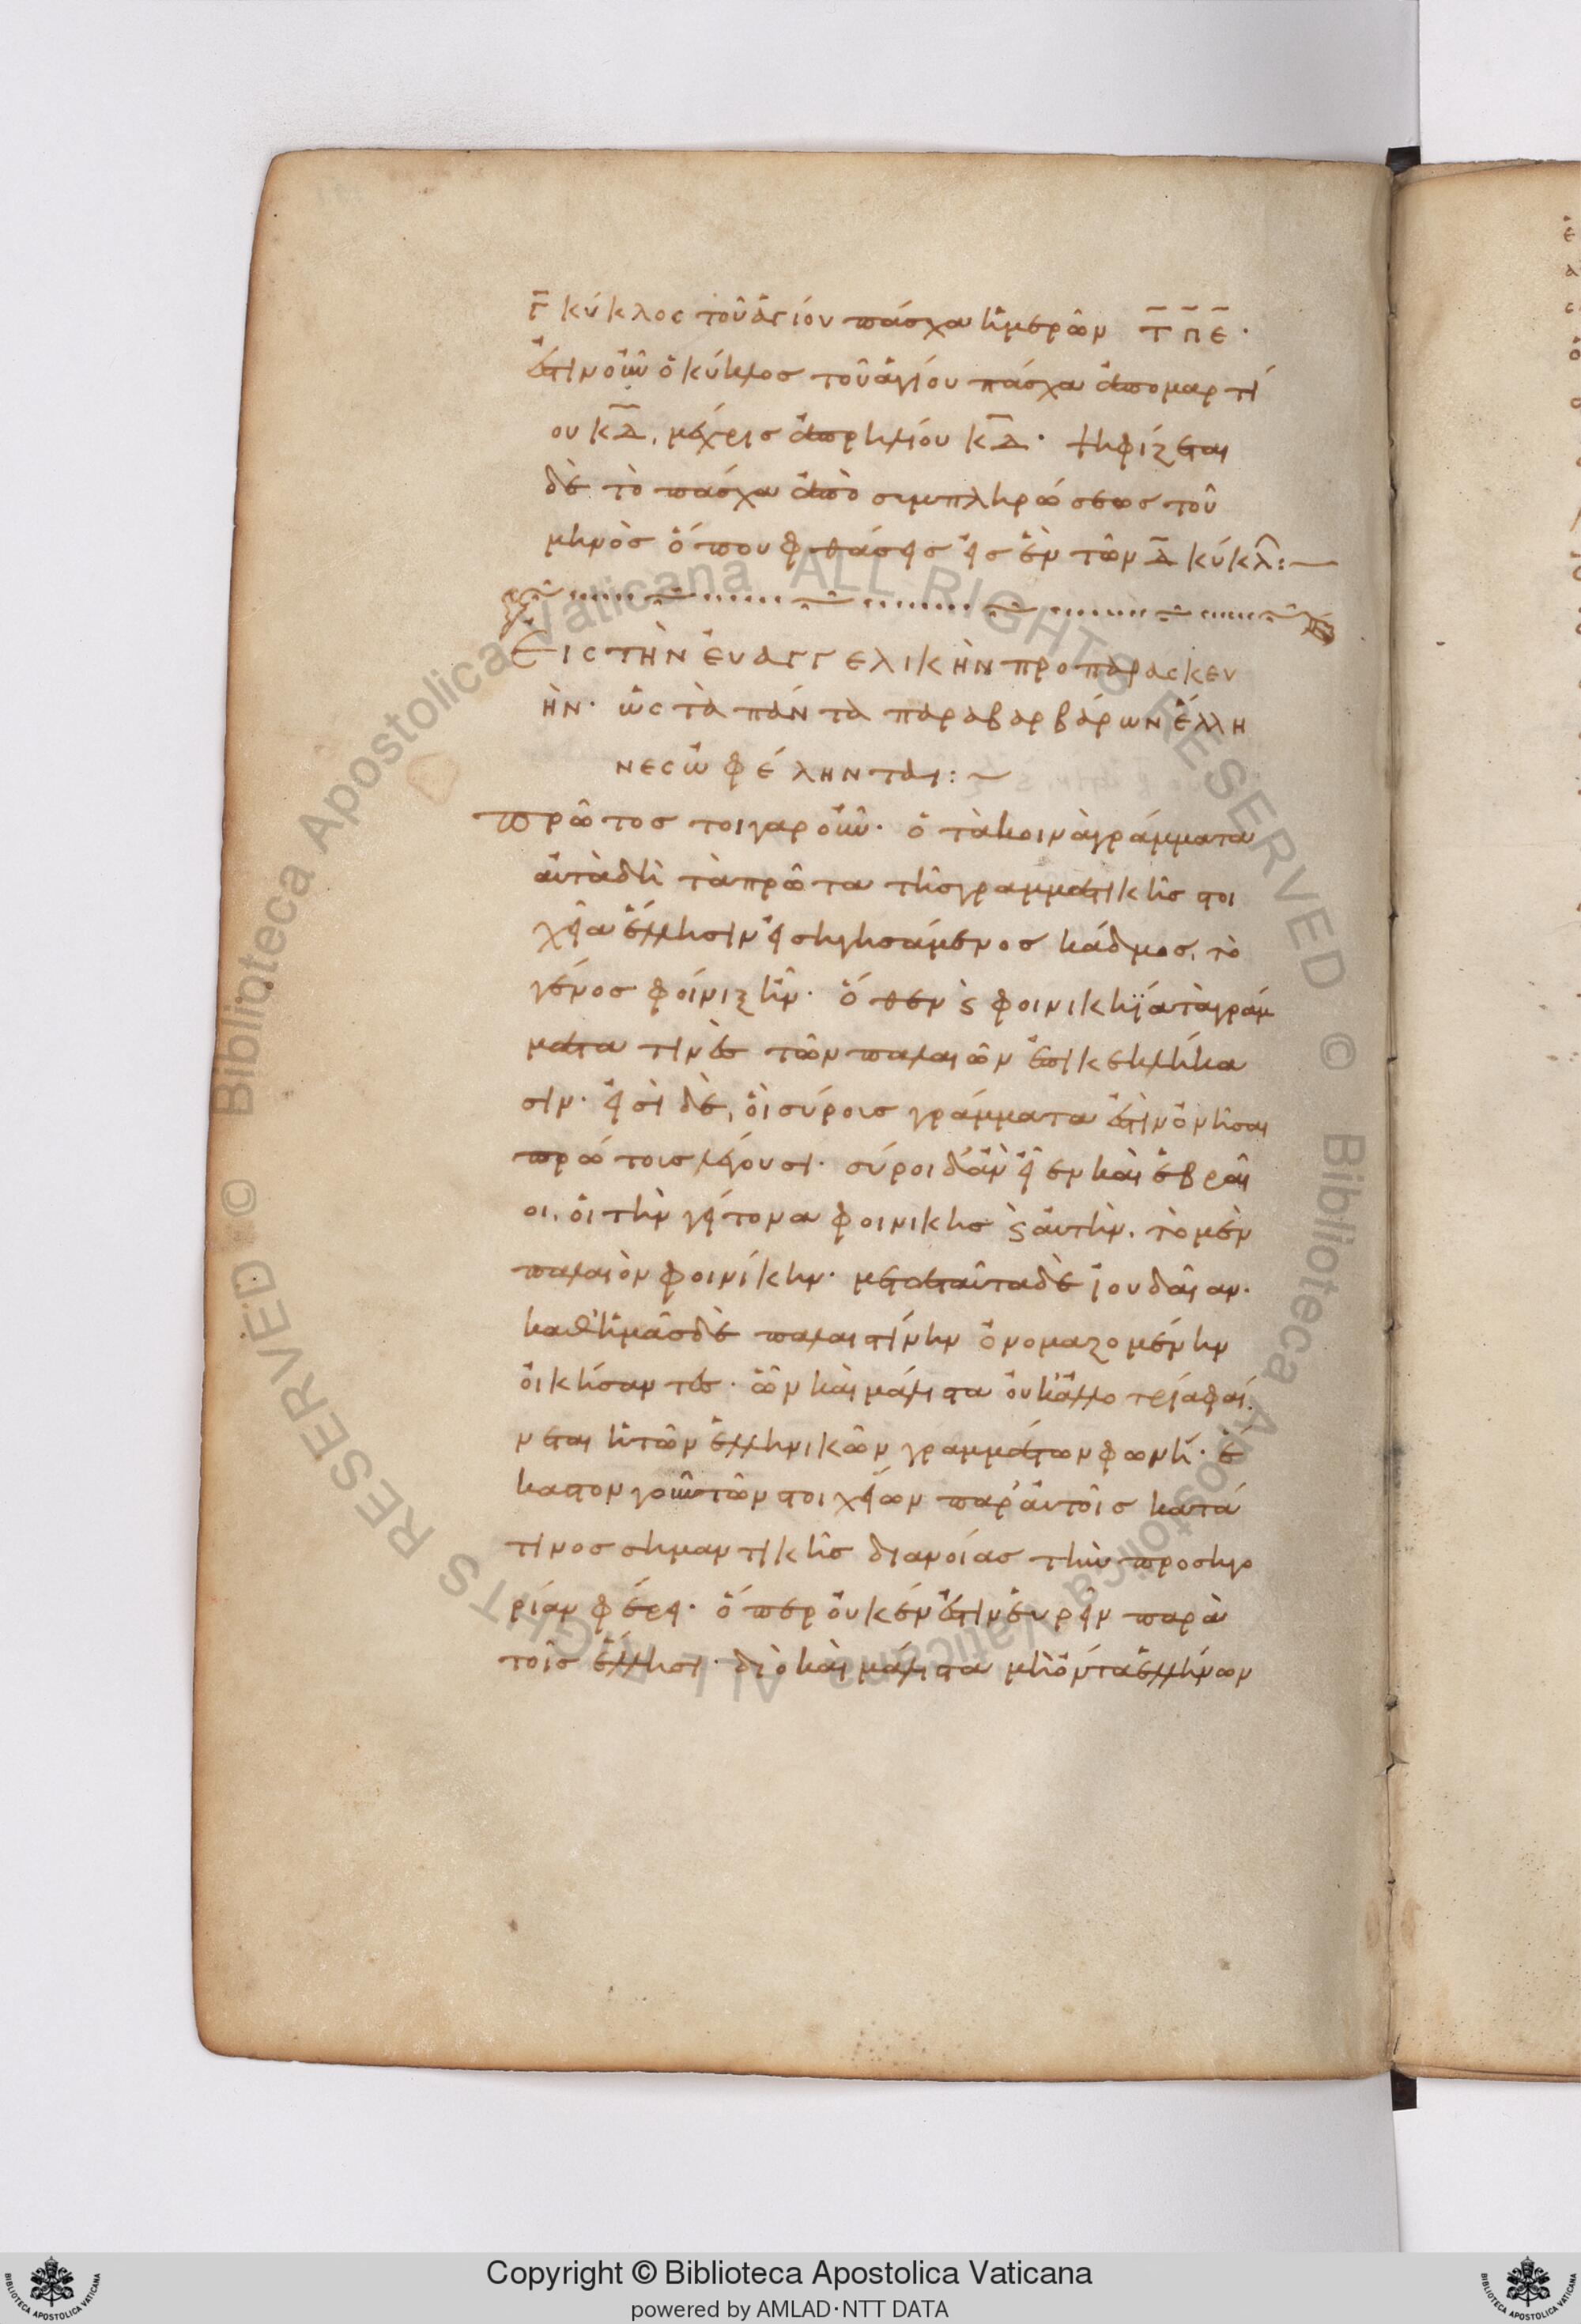 Γ̄ κύκλος τοῦ ἁγίου πάσχα ἡμερῶν Τ̄Π̄Ε̄·
ἔστιν οὖν ὁ κύκλος τοῦ ἁγίου πάσχα ἀπὸ μαρτί
ου ΚΔ̄, μέχρις ἀπρηλίου ΚΔ̄· ψηφίζεται
δὲ τὸ πάσχα ἀπὸ συμπληρώσεως τοῦ
μηνὸς ὅπου φθάσεις εἰς ἓν τῶν Δ̄ κύκλ:
Εἰς τὴν ἐυαγγελικὴν προπαρασκευ
ὴν· ὡς τὰ πάντα παρα βαρβάρων ἕλλη
νες ὠφέληνται:
πρῶτος τοιγαροῦν· ὁ τὰ κοινὰ γράμματα
ἀυτὰ δὴ τὰ πρῶτα τῆς γραμματικῆς στοι
χεῖα ἕλλησιν εἰσηγησάμενος κάδμος, τὸ
γένος φοίνιξ ἦν· ὅθεν ϗ φοινικήϊα τὰ γράμ
ματα τινὲς τῶν παλαιῶν ἐπικεκλήκα
σιν· εἰσὶ δὲ, ὁὶ σύροις γράμματα ἐστὶν ὀνῆσαι
πρώτοις λέγουσι· σύροι δ' ἂν εἶεν καὶ ἑβραῖ
οι, ὁι τὴν γείτονα φοινικης ϗ ἀυτὴν, τὸ μὲν
παλαιὸν φοινίκην· μετα ταῦτα δὲ ἰουδαῖαν·
καθ' ἡμᾶς δὲ παλαιστίνην ὀνομαζομένην
ὀικήσαντες· ὧν καὶ μάλιστα ὀυκ ἀλλοτρία φαί
νεται ἡ τῶν ἑλληνικῶν γραμμάτων φωνή· ἕ
καστον γοῦν τῶν στοιχείων παρ' ἀυτοῖς κατά
τινος σημαντικῆς διανοίας τὴν προσηγο
ρίαν φέρει· ὅπερ ὀυκ ἐν ἐστὶν ἑυρεῖν παρὰ
τοῖς ἕλλησι· διὸ καὶ μάλιστα μὴ ὄντα ἑλλήνων
Copyright © Biblioteca Apostolica Vaticana
powered by AMLAD·NTT DATA